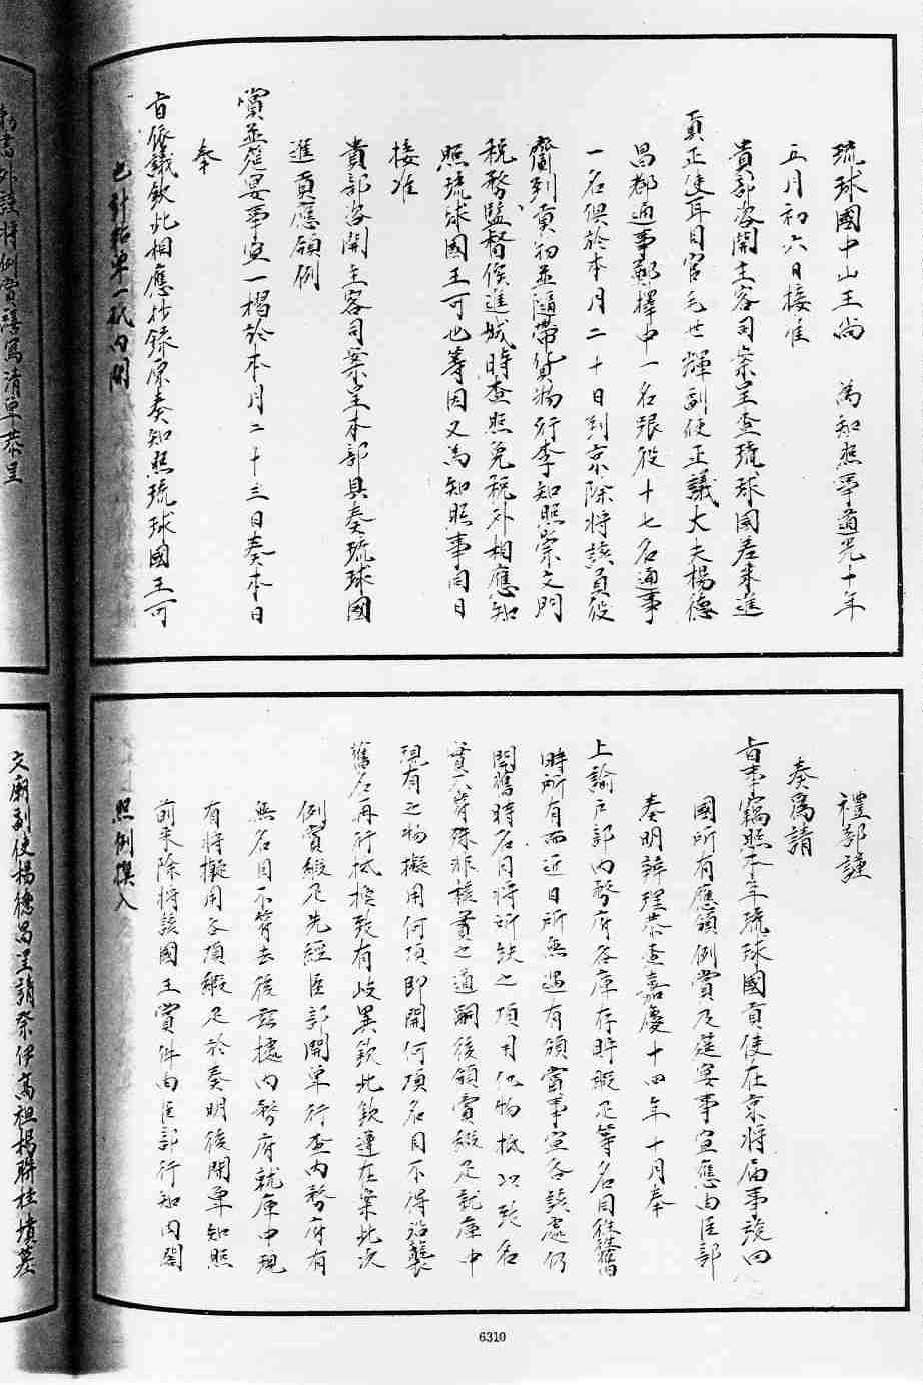 琉球國中山王尚　為知照事道光十年
五月初六日接准
貴部咨開主客司案呈查琉球國差來進
貢正使耳目官毛世輝副使正議大夫楊德
昌都通事鄭擇中一名跟役十七名通事
一名俱於本月二十日到京除將該員役
齎到貢物並隨帶貨物行李知照崇文門
稅務監督俟進城時查照免稅外相應知
照琉球國王可也等因又為知照事同日
接准
貴部咨開主客司案呈本部具奏琉球國
進貢應領例
賞並筵宴事宜一摺於本月二十三日奏本日
奉
旨依議欽此相應抄錄原奏知照琉球國王可
也計粘單一紙內開
禮部謹
奏為請
旨事竊照本年琉球國貢使在京將屆事竣回
國所有應領例賞及筵宴事宜應由臣部
奏明辦理恭查嘉慶十四年十月奉
上諭戶部內務府各庫存貯緞疋等名目係舊
時所有而近日所無遇有頒賞事宜各該處仍
開舊時名目將所缺之項用他物抵以致名
實不符殊非核實之道嗣後頒賞緞疋就庫中
現有之物擬用何項即開何項名目不得沿襲
舊名再行抵換致有歧異欽此欽遵在案此次
例賞緞疋先經臣部開單行查內務府有
無名目不符去後茲據內務府就庫中現
有將擬用各項緞疋於奏明後開單知照
前來除將該國王賞件由臣部行知內閣
照例撰入
勅書外謹將例賞謹寫清單恭呈
文廟副使楊德昌呈請祭伊高祖楊聯桂墳墓
6310